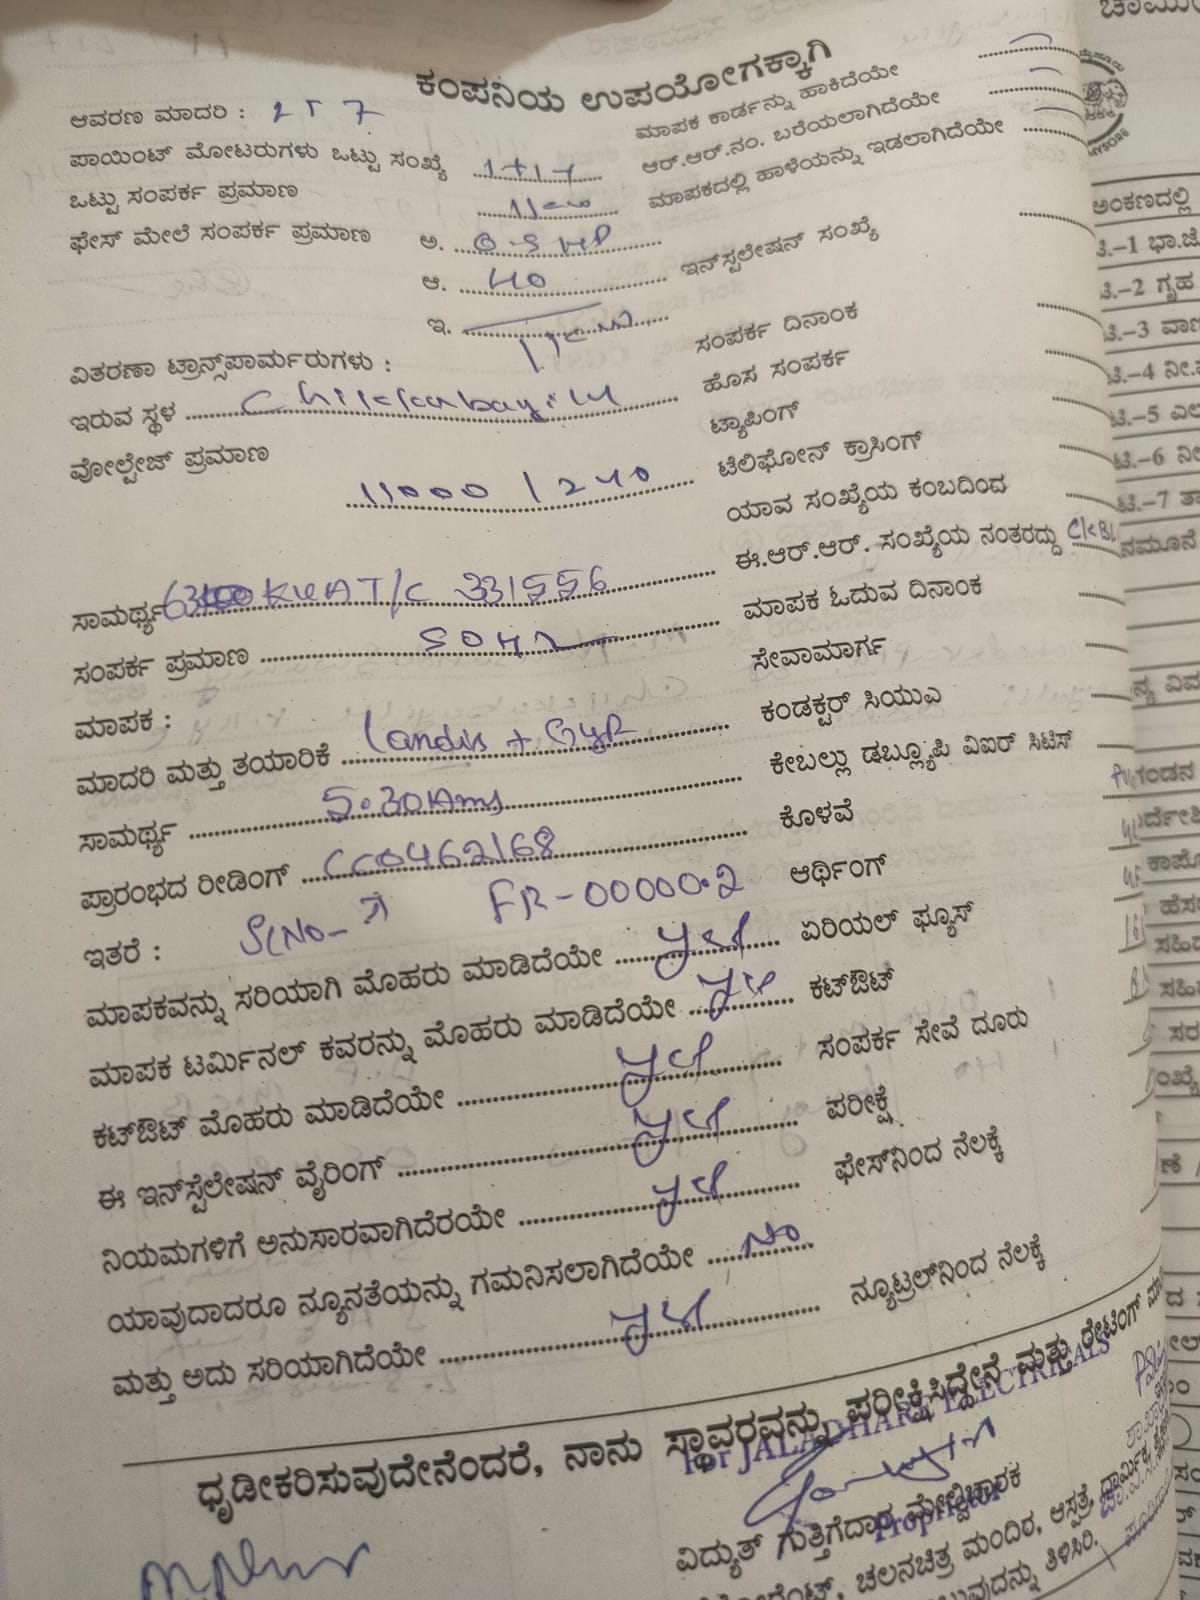 ಕಂಪನಿಯ ಉಪಯೋಗಕ್ಕಾಗಿ
ಆವರಣ ಮಾದರಿ : 2 5 7
ಪಾಯಿಂಟ್ ಮೋಟರುಗಳು ಒಟ್ಟು ಸಂಖ್ಯೆ 1+1+
ಒಟ್ಟು ಸಂಪರ್ಕ ಪ್ರಮಾಣ
ಫೇಸ್ ಮೇಲೆ ಸಂಪರ್ಕ ಪ್ರಮಾಣ ಅ. 0-5 HP
ಆ. 40
ಇ.
ವಿತರಣಾ ಟ್ರಾನ್ಸ್‌ಪಾರ್ಮರುಗಳು :
ಇರುವ ಸ್ಥಳ
ವೋಲ್ಟೇಜ್ ಪ್ರಮಾಣ
11000 / 240
ಸಾಮರ್ಥ್ಯ KVA T/C 331556
ಸಂಪರ್ಕ ಪ್ರಮಾಣ 50HZ
ಮಾಪಕ :
ಮಾದರಿ ಮತ್ತು ತಯಾರಿಕೆ Landis + GyR
ಸಾಮರ್ಥ್ಯ 5-30Amp
ಪ್ರಾರಂಭದ ರೀಡಿಂಗ್ CC0462168
ಇತರೆ : SlNo- FR-00000.2
ಮಾಪಕವನ್ನು ಸರಿಯಾಗಿ ಮೊಹರು ಮಾಡಿದೆಯೇ yes
ಮಾಪಕ ಟರ್ಮಿನಲ್ ಕವರನ್ನು ಮೊಹರು ಮಾಡಿದೆಯೇ yes
ಕಟ್‌ಔಟ್ ಮೊಹರು ಮಾಡಿದೆಯೇ yes
ಈ ಇನ್‌ಸ್ಟೆಲೇಷನ್ ವೈರಿಂಗ್ yes
ನಿಯಮಗಳಿಗೆ ಅನುಸಾರವಾಗಿದೆರಯೇ yes
ಯಾವುದಾದರೂ ನ್ಯೂನತೆಯನ್ನು ಗಮನಿಸಲಾಗಿದೆಯೇ No
ಮತ್ತು ಅದು ಸರಿಯಾಗಿದೆಯೇ yes
ಮಾಪಕ ಕಾರ್ಡನ್ನು ಹಾಕಿದೆಯೇ
ಆರ್.ಆರ್.ನಂ. ಬರೆಯಲಾಗಿದೆಯೇ
ಮಾಪಕದಲ್ಲಿ ಹಾಳೆಯನ್ನು ಇಡಲಾಗಿದೆಯೇ
ಇನ್‌ಸ್ಟಲೇಷನ್ ಸಂಖ್ಯೆ
ಸಂಪರ್ಕ ದಿನಾಂಕ
ಹೊಸ ಸಂಪರ್ಕ
ಟ್ಯಾಪಿಂಗ್
ಟೆಲಿಫೋನ್ ಕ್ರಾಸಿಂಗ್
ಯಾವ ಸಂಖ್ಯೆಯ ಕಂಬದಿಂದ
ಈ.ಆರ್.ಆರ್. ಸಂಖ್ಯೆಯ ನಂತರದ್ದು CKBL
ಮಾಪಕ ಓದುವ ದಿನಾಂಕ
ಸೇವಾಮಾರ್ಗ
ಕಂಡಕ್ಟರ್ ಸಿಯುಎ
ಕೇಬಲ್ಲು ಡಬ್ಲ್ಯೂಪಿ ವಿಐರ್ ಸಿಟಿಸ್
ಕೊಳವೆ
ಆರ್ಥಿಂಗ್
ಏರಿಯಲ್ ಫ್ಯೂಸ್
ಕಟ್‌ಔಟ್
ಸಂಪರ್ಕ ಸೇವೆ ದೂರು
ಪರೀಕ್ಷೆ
ಫೇಸ್‌ನಿಂದ ನೆಲಕ್ಕೆ
ನ್ಯೂಟ್ರಲ್‌ನಿಂದ ನೆಲಕ್ಕೆ
ಧೃಡೀಕರಿಸುವುದೇನೆಂದರೆ, ನಾನು ಸ್ಥಾವರವನ್ನು ಪರೀಕ್ಷಿಸಿದ್ದೇನೆ ಮತ್ತು ರೇಟಿಂಗ್
For JALADHARE ELECTRICALS
ವಿದ್ಯುತ್ ಗುತ್ತಿಗೆದಾರ ಮೇಲ್ವಿಚಾರಕ
Proprietor
ಚಲನಚಿತ್ರ ಮಂದಿರ, ಆಸ್ಪತ್ರೆ, ಧಾರ್ಮಿಕ
ತಿಳಿಸಿರಿ.
ಅಂಕಣದಲ್ಲಿ
ಟಿ.-2 ಗೃಹ
ನಮೂನೆ